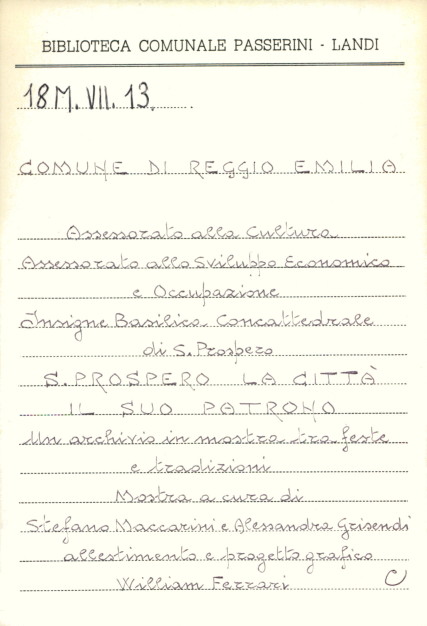 BIBLIOTECA COMUNALE PASSERINI - LANDI
18 M. VII. 13.
COMUNE DI REGGIO EMILIA
Assessorato alla Cultura
Assessorato allo Sviluppo Economico
e Occupazione
Insigne Basilica Concattedrale
di S. Prospero
S. PROSPERO LA CITTÀ
IL SUO PATRONO
Un archivio in mostra tra feste
e tradizioni
Mostra a cura di
Stefano Maccarini e Alessandra Grisendi
allestimento e progetto grafico
William Ferrari